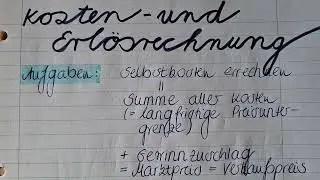 Kosten - und
Erlösrechnung
Aufgaben: Selbstkosten errechnen
=
Summe aller Kosten
(= langfristige Preisunter-
grenze)
+ Gewinnzuschlag
= Marktpreis = Verkaufspreis